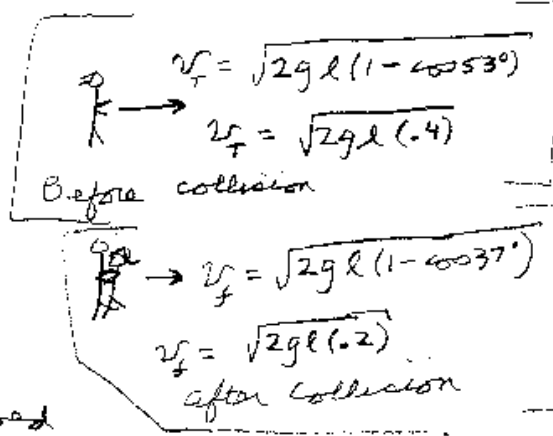 v_T = √2gl(1 - cos53°)
v_T = √2gl(.4)
Before collision
v_f = √2gl(1 - cos37°)
v_f = √2gl(.2)
after collision